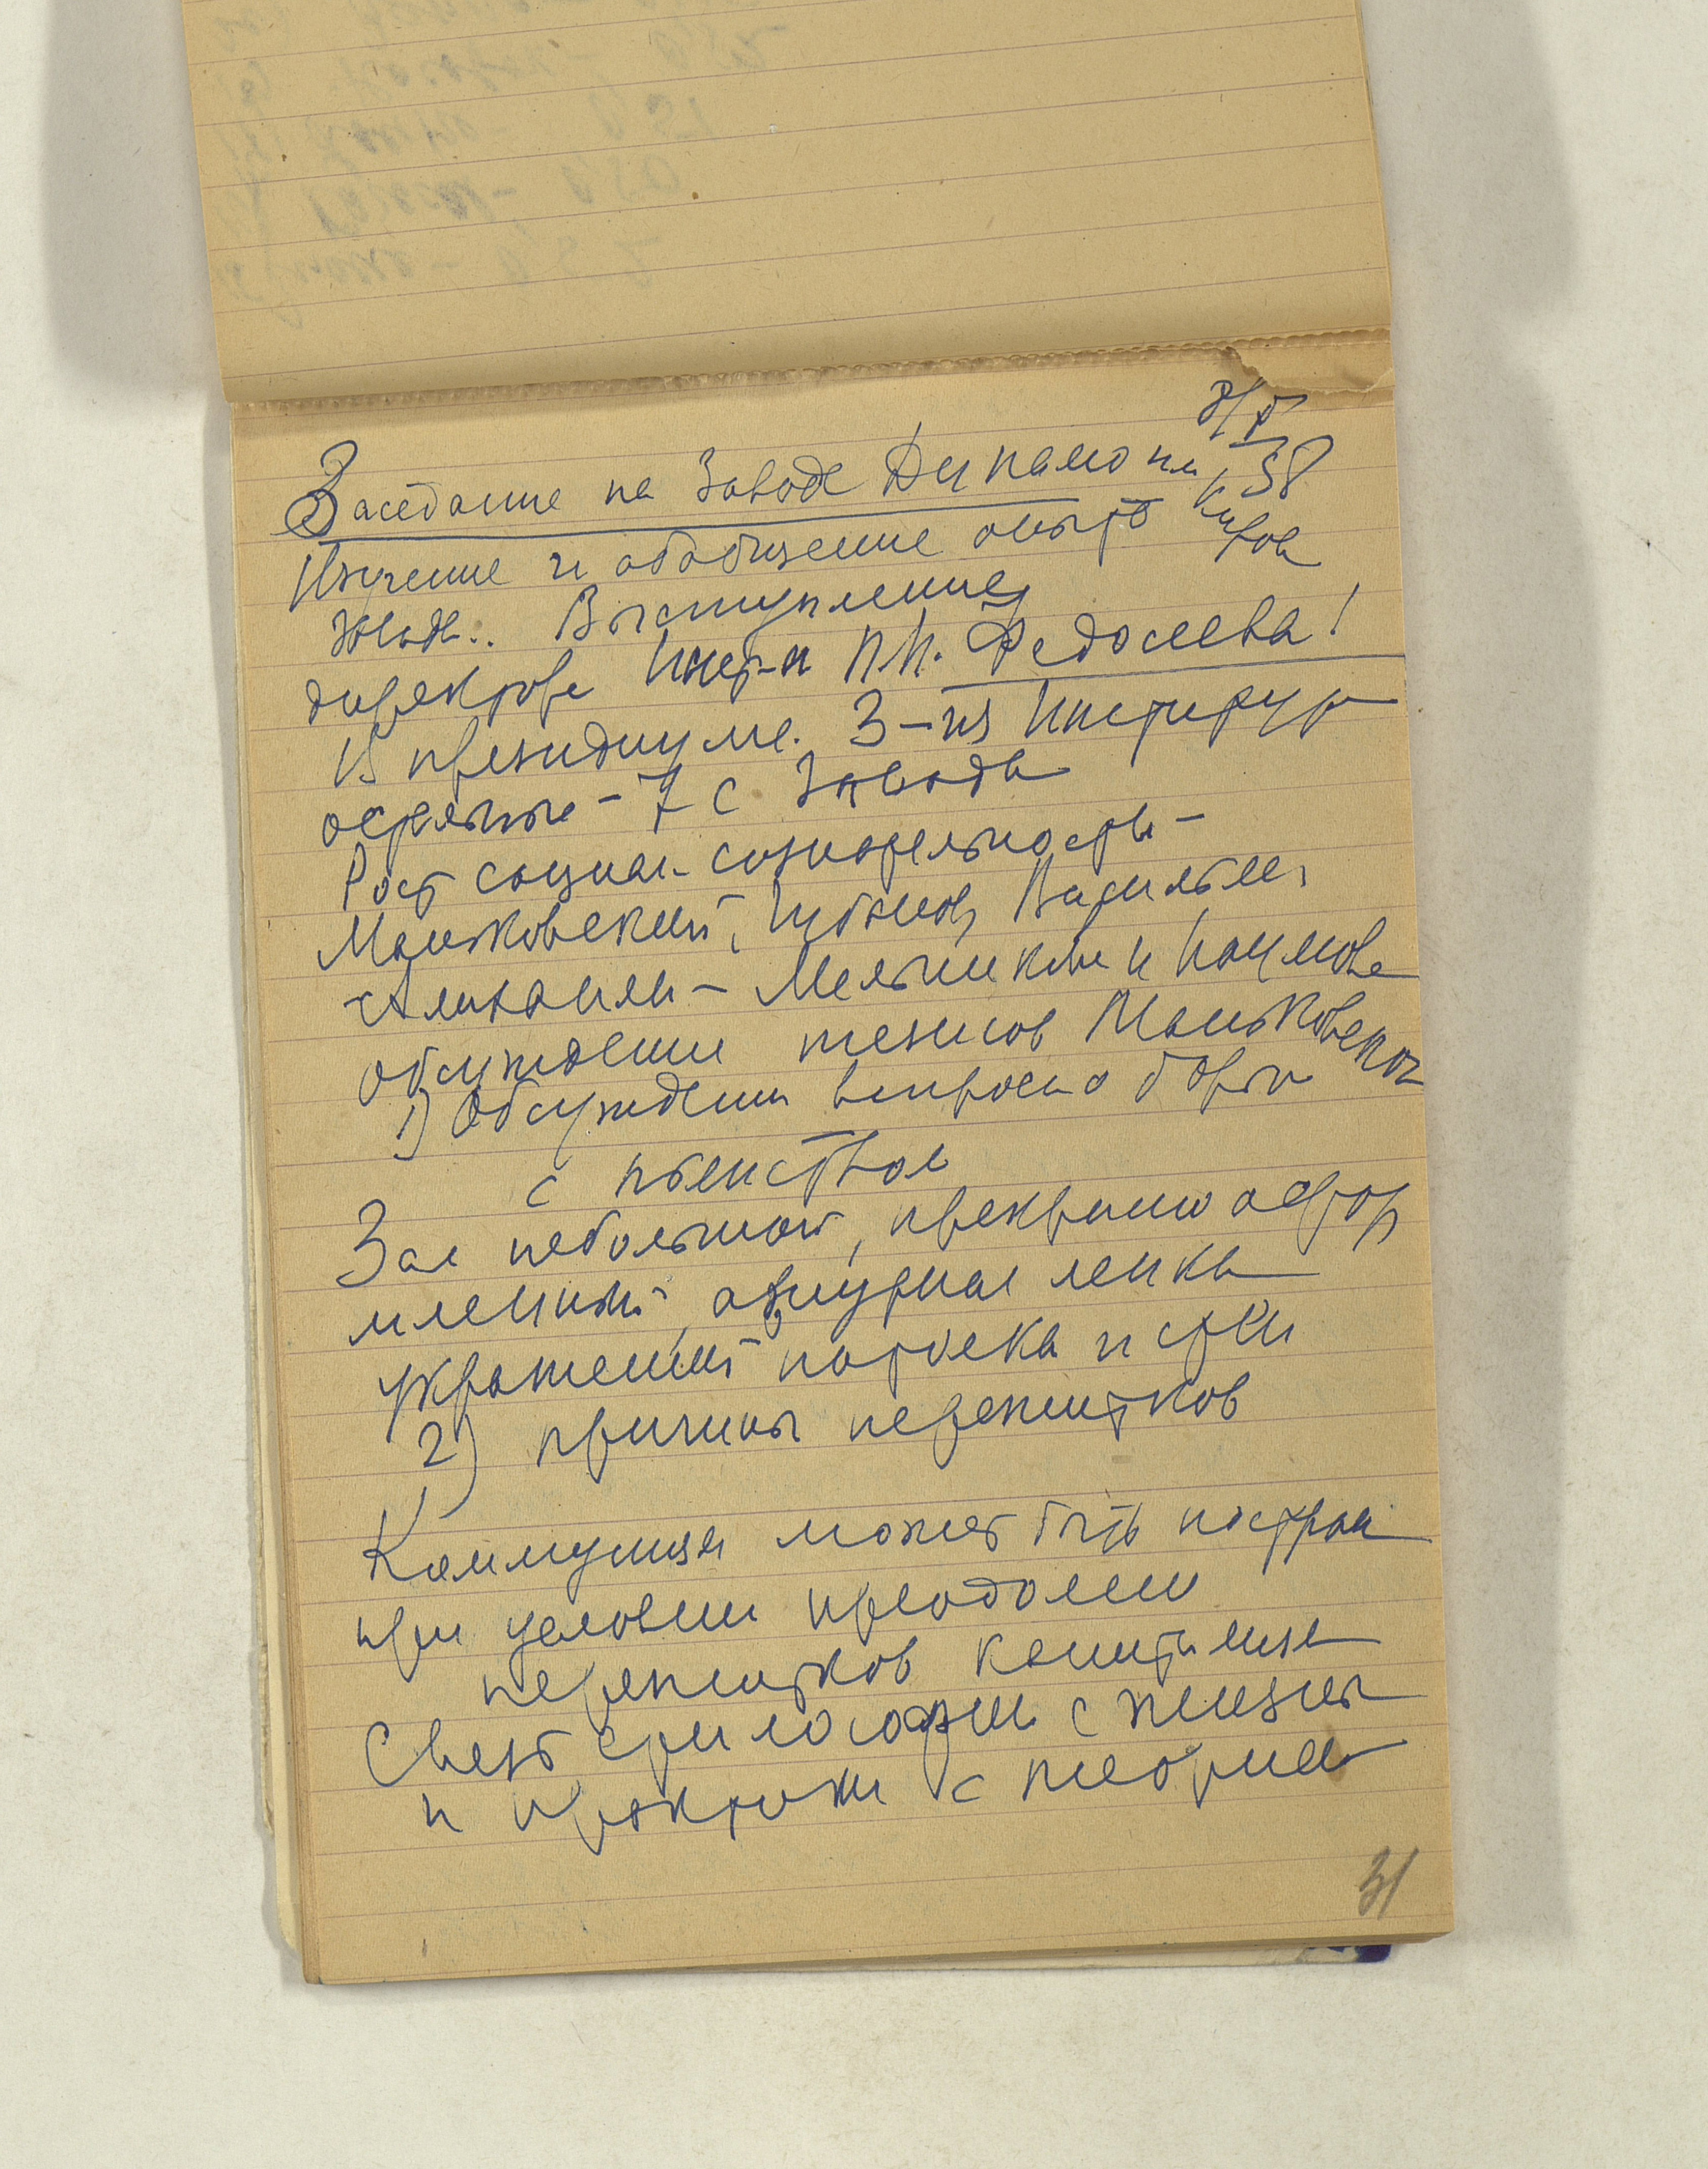 8/X 58
Заседание на Заводе Динамо им Кирова
Изучение и обобщение опыта
завода.. Выступление
директора Инст-а П.Н. Федосеева!
В президиуме. 3 – из Института
остальные – 7 с Завода
Рост социал. сознательности –
Маньковский, Шубанов, Васильев,
– Мельников и Наумова
обсуждение тезисов Маньковског
1) Обсуждении вопроса о борьб
с пьянством
Зал небольшой, прекрасно офор
мленный, ажурная лепка
украшений потолка и стен
2) причины пережитков
Коммунизм может быть построен
при условии преодолени
пережитков капитализма
Связь философии с жизнью
и практики с теорией
31